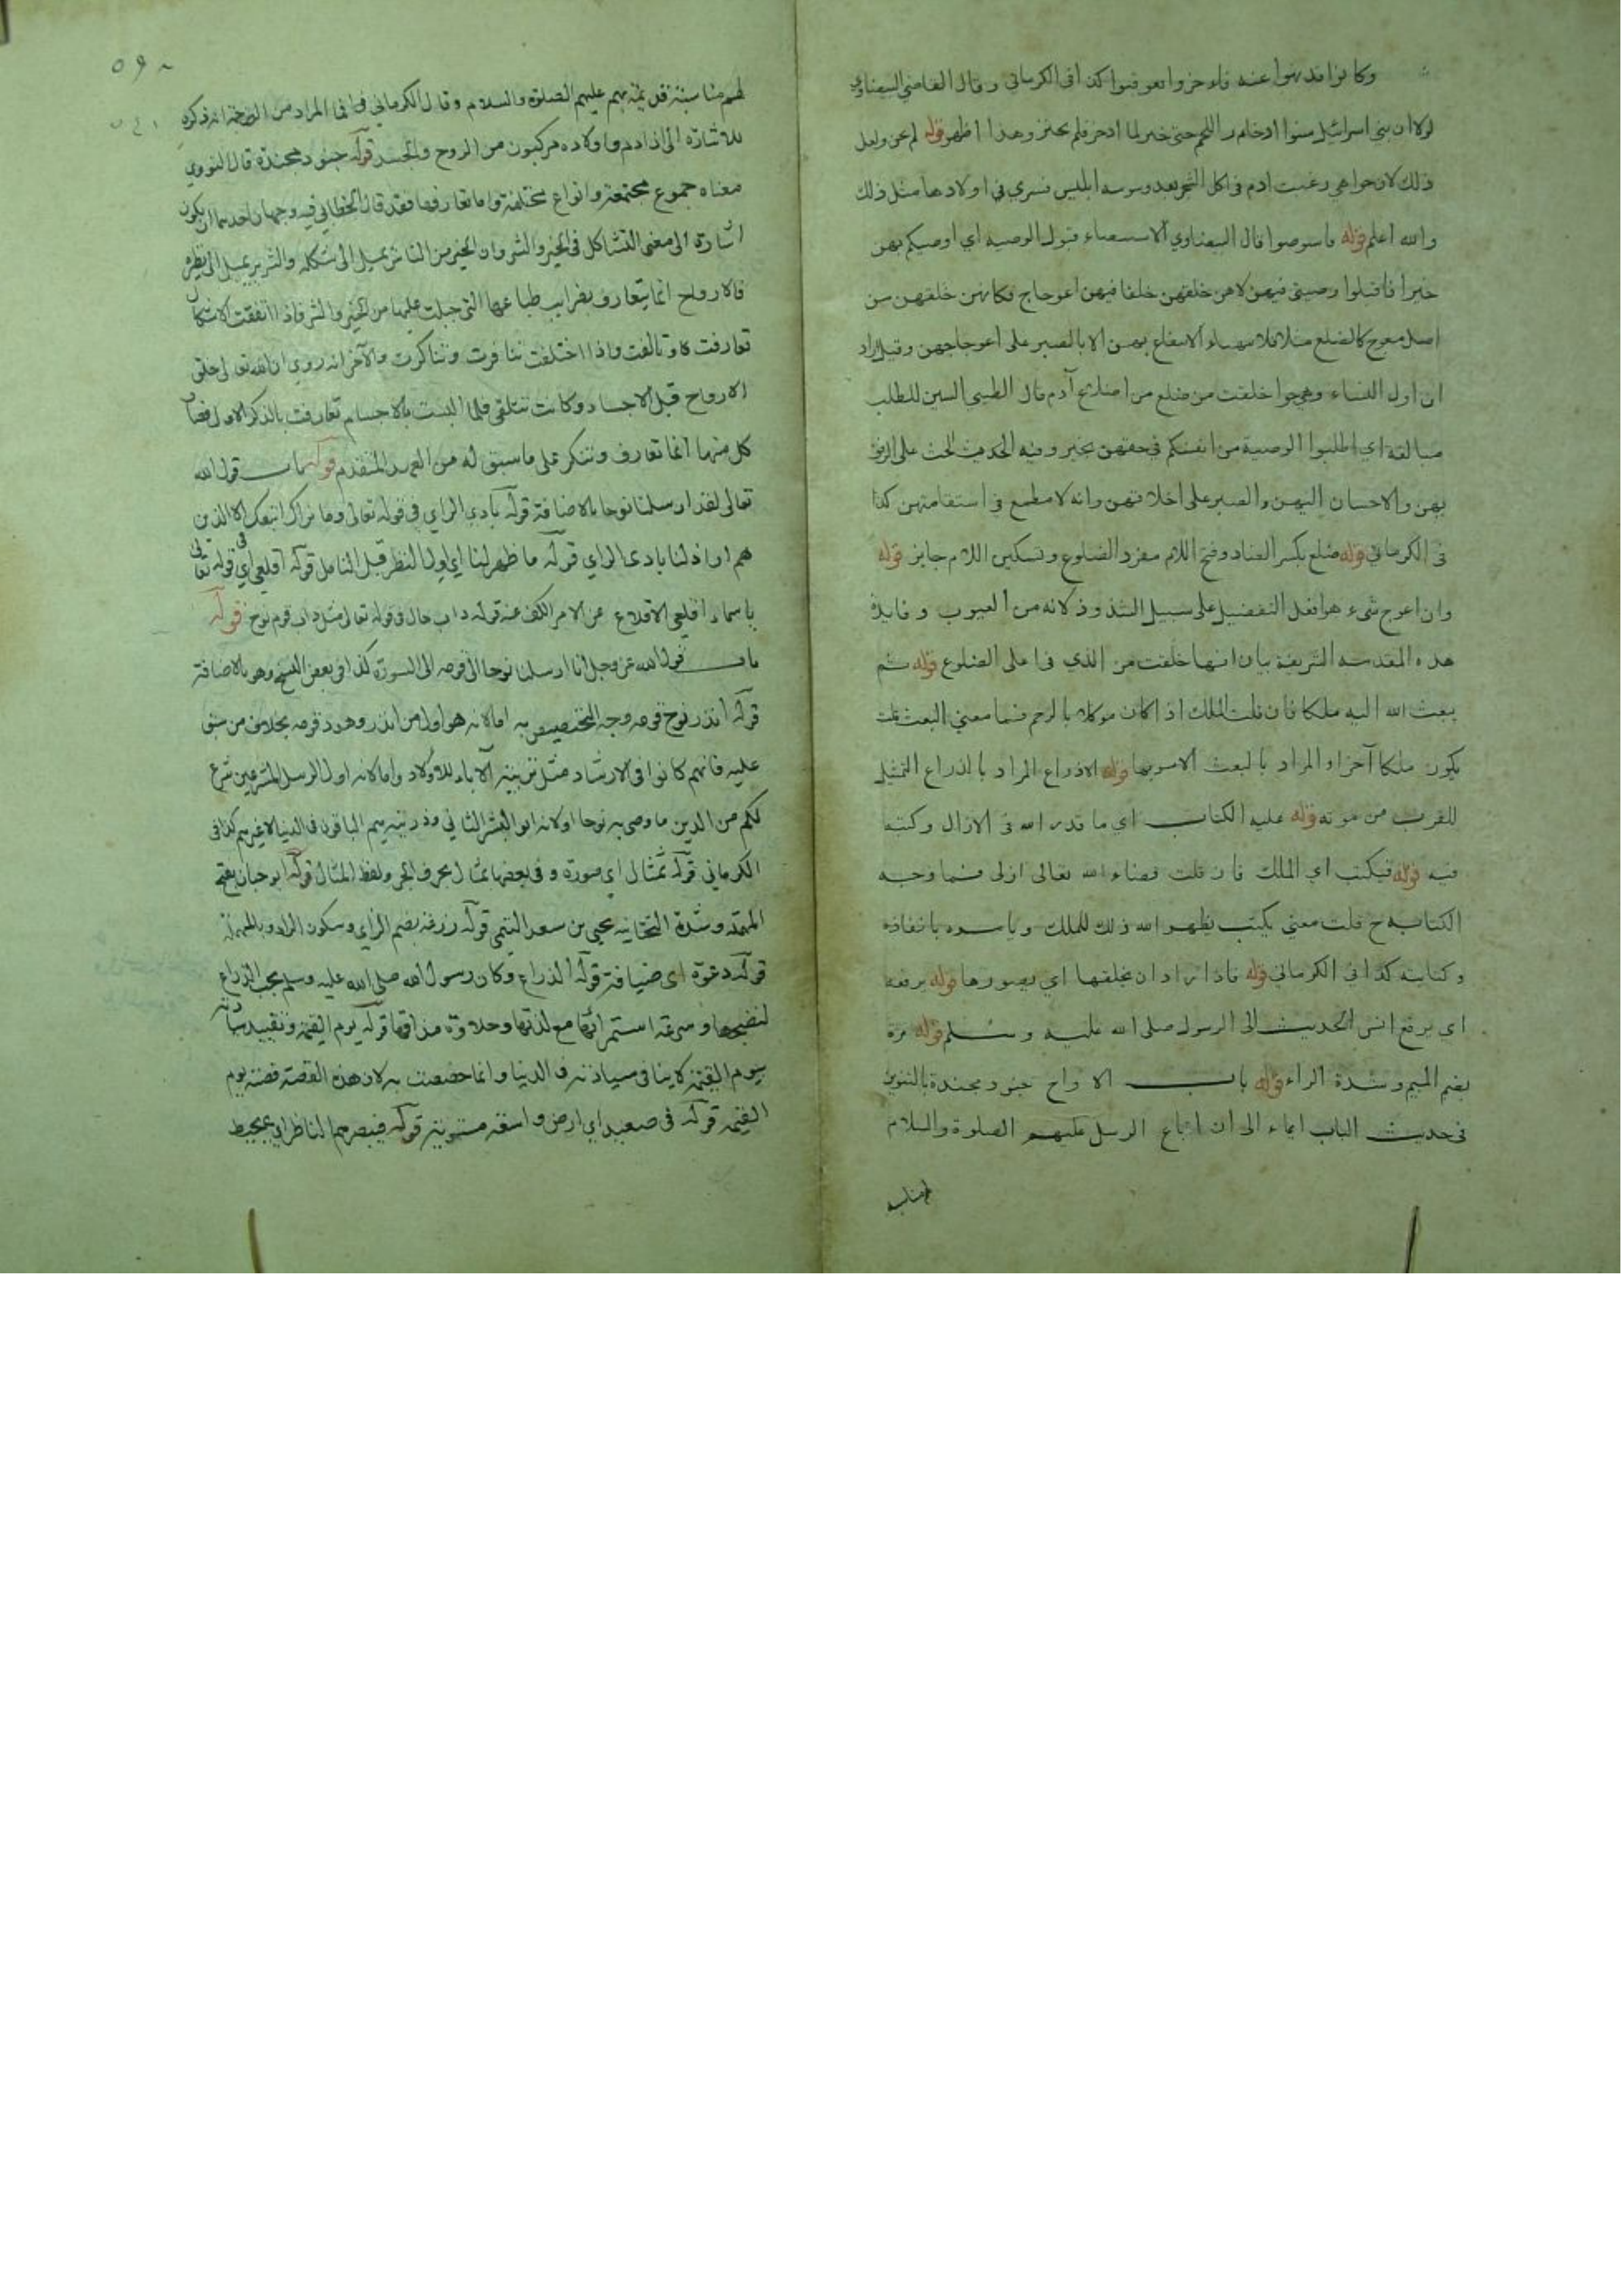 وكانوا قد نهوا عنه فادخروا فعوقبوا كذا في الكرماني وقال القاضي البيضاوي
لولا ان بني اسرائيل سنوا ادخار اللحم حتى خنز لما ادخر فلم يخنز وهذا اظهر قوله لم تخن ولعل
ذلك لان حوا هي رغبت ادم في اكل الشجر بعد وسوسه ابليس فسري في اولادها مثل ذلك
والله اعلم قوله فاستوصوا قال البيضاوي الاستيصاء قبول الوصيه اي اوصيكم بهن
خيرا فاقبلوا وصيتي فيهن لانهن خلقهن خلقا فيهن اعوجاج فكانهن خلقهن من
اصل معوج كالضلع مثلا فلا يتهياء الانتفاع بهن الا بالصبر على اعوجاجهن وقيل اراد
ان اول النساء وهي حوا خلقت من ضلع من اضلاع آدم قال الطيبي السين للطلب
مبالغة اي اطلبوا الوصية من انفسكم في حقهن بخير وفيه الحديث الحث على الرفق
بهن والاحسان اليهن والصبر على اخلاقهن وانه لا مطمع في استقامتهن كذا
في الكرماني قوله ضلع بكسر الضاد وفتح اللام مفرد الضلوع وتسكين اللام جايز قوله
وان اعوج شيء هو افعل التفضيل على سبيل الشذوذ لانه من العيوب وفايدة
هذه المقدمه الشريفة بيان انها خلقت من الذي في اعلى الضلوع قوله ثم
يبعث الله اليه ملكا فان قلت الملك اذا كان موكلا بالرحم فما معني البعث قلت
يكون ملكا آخر او المراد بالبعث الامر بها قوله الا ذراع المراد بالذراع التمثيل
للقرب من موته قوله عليه الكتاب اي ما قدر الله في الازال وكتبه
فيه قوله فيكتب اي الملك فان قلت قضاء الله تعالى ازلى فما وجه
الكتابه ح قلت معنى يكتب يظهر الله ذلك للملك ويامره بانفاذه
وكتابته كذا في الكرماني قوله فاذا اراد ان يخلقها اي يصورها قوله يرفعه
اى يرفع انس الحديث الى الرسول صلى الله عليه وسلم قوله مرة
بضم الميم وشدة الراء قوله باب الارواح جنود مجندة بالتنوين
في حديث الباب ايماء الى ان اتباع الرسل عليهم الصلوة والسلام
لهم مناسبة قديمة بهم عليهم الصلوة والسلام وقال الكرماني المراد من الترجمة
للاشارة الى ان ادم واولاده مركبون من الروح والجسد قوله جنود مجندة قال النووي
معناه جموع مجتمعة وانواع مختلفة واما تعارفها فقد قال الخطابي فيه وجهان احدهما ان يكون
اشارة الى معنى التشاكل في الخير والشر وان الخير من الناس يميل الى شكله والشرير يميل الى نظيره
فالارواح انما يتعارف بضرايب طباعها التي جبلت عليها من الخير والشر فاذا اتفقت الاشكال
تعارفت وتالفت واذا اختلفت تنافرت وتناكرت والآخر انه روي ان الله تعالى خلق
الارواح قبل الاجساد وكانت تتلقى فلما التبست بالاجسام تعارفت بالذكر الاول فصار
كل منهما انما تعارف وتنكر على ما سبق له من العهد المتقدم قوله باب قول الله
تعالى لقد ارسلنا نوحا بالاضافة قوله بادي الراي في قوله تعالى وما نراك اتبعك الا الذين
هم اراذلنا بادى الراي قوله ما ظهر لنا اي اول النظر قبل التامل قوله اقلعي اي في قوله تعالى
يا سماء اقلعي الاقلاع عن الامر الكف عنه قوله داب حال في قوله تعالى مثل داب قوم نوح قوله
باب قول الله عز وجل انا ارسلنا نوحا الى قومه الى السورة كذا في بعض النسخ وهو بالاضافة
قوله انذر نوح قومه وجه التخصيص به اما لانه هو اول من انذر وهدد قومه بخلاف من سبق
عليه فانهم كانوا في الارشاد مثل تربية الآباء للاولاد واما لانه اول الرسل المشرعين شرع
لكم من الدين ما وصى به نوحا اولانه ابو البشر الثاني وذريته هم الباقون في الدنيا لا غيرهم كذا في
الكرماني قوله تمثال اي صورة وفي بعضها بمثال بحرف الجر ولفظ المثال قوله ابو حيان بفتح
المهملة وشدة التحتانيه يحيى بن سعد التيمي قوله زرعه بضم الزاي وسكون الراء وبالمهملة
قوله دعوة اى ضيافة قوله الذراع وكان رسول الله صلى الله عليه وسلم يحب الذراع
لنضجها وسرعة استمرائها مع لذتها وحلاوة مذاقها قوله يوم القيمة وتقييد سيادته
بيوم القيمة لا ينافي سيادته في الدنيا وانما خصصت به لان هذه القصة قصة يوم
القيمه قوله في صعيد اي ارض واسعة مستوية قوله فيبصرهم الناظر اي يحيط